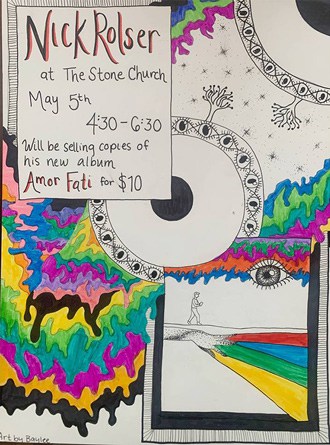 Nick Rolser
at The Stone Church
May 5th
4:30-6:30
Will be selling copies of
his new album
Amor Fati for $10
Art by Baylee